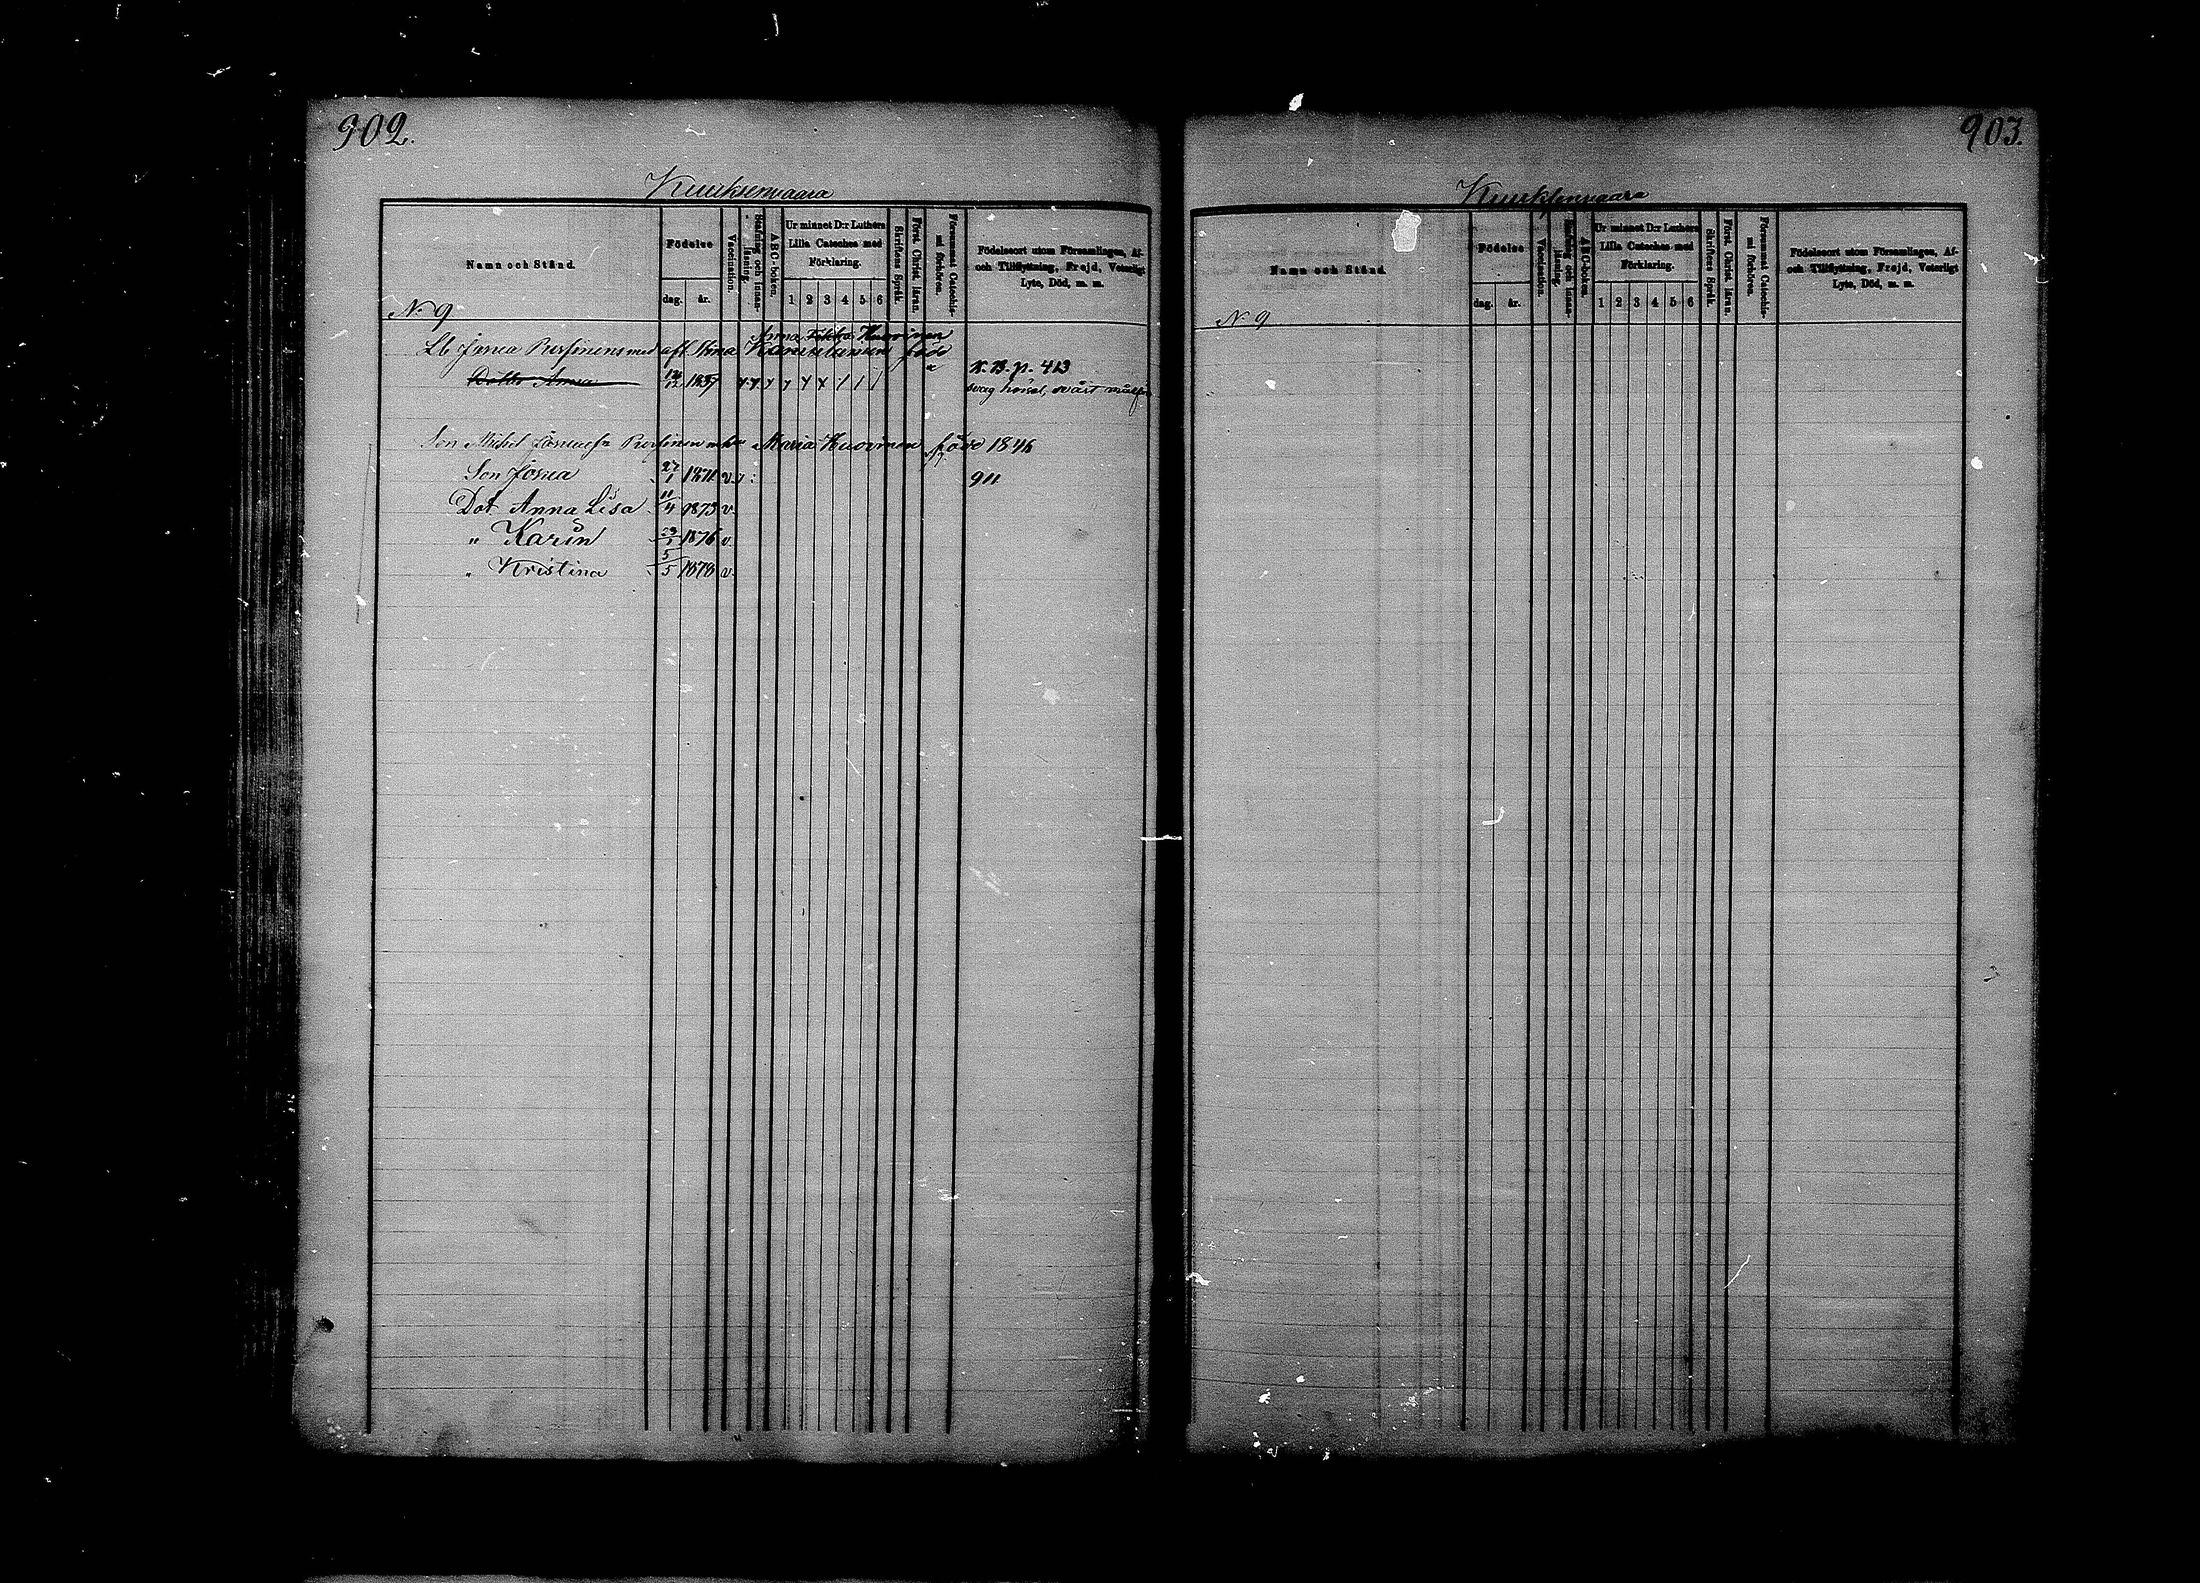 902.
Kuuksenvaara
Namn och Stånd.
Födelse
dag. år.
Vaccination.
Stafning och Innan-läsning.
ABC-boken.
Ur minnet D:r Luthers Lilla Cateches med Förklaring.
1 2 3 4 5 6
Skriftens Språk.
Först. Christ. läran.
Försummat Catechis-mi förhören.
Födelseort utom Församlingen, Af- och Tillflyttning, Frejd, Veterligt Lyte, Död, m. m.
N 9
Anna Huovinen
Lb Josua med afl. Stina född
Dotter Anna 1837
K.B. p. 413
svag hörsel, svårt
Son Michel Maria Huovinen född 1846
Son Josua 27/1 1871 v. 911
Dot Anna Lisa 11/4 1873 v.
" Karin 1876 v.
" Kristina 5/5 1878 v.
903.
Kuuksenvaara
Namn och Stånd.
Födelse
dag. år.
Vaccination.
Stafning och Innan-läsning.
ABC-boken.
Ur minnet D:r Luthers Lilla Cateches med Förklaring.
1 2 3 4 5 6
Skriftens Språk.
Först. Christ. läran.
Försummat Catechis-mi förhören.
Födelseort utom Församlingen, Af- och Tillflyttning, Frejd, Veterligt Lyte, Död, m. m.
N 9